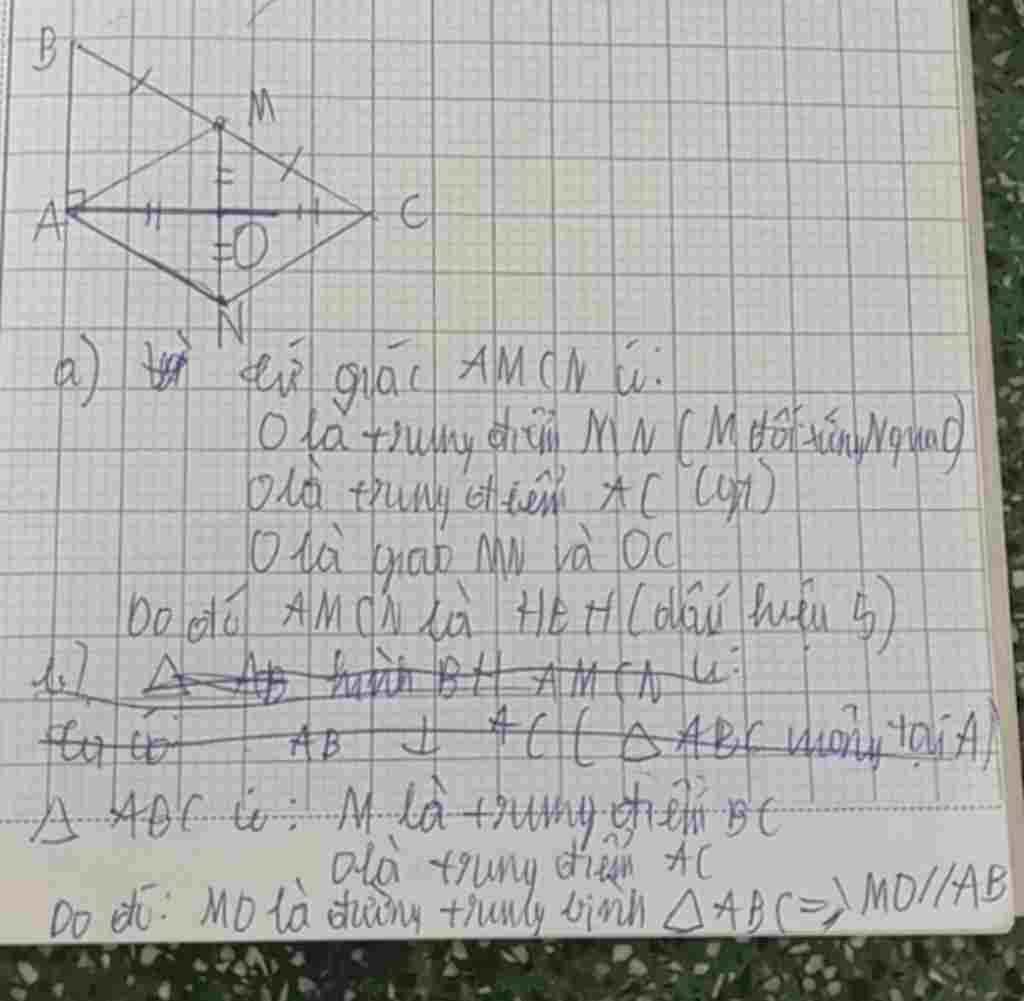 B
M
A
C
O
N
a) tứ giác AMCN có:
O là trung điểm MN (M đối xứng N qua O)
O là trung điểm AC (gt)
O là giao MN và OC
Do đó AMCN là HBH (dấu hiệu 5)
b) Δ AB hành BH AMCN có:
Ta có AB ⊥ AC (Δ ABC vuông tại A)
Δ ABC có: M là trung điểm BC
O là trung điểm AC
Do đó: MO là đường trung bình Δ ABC => MO // AB